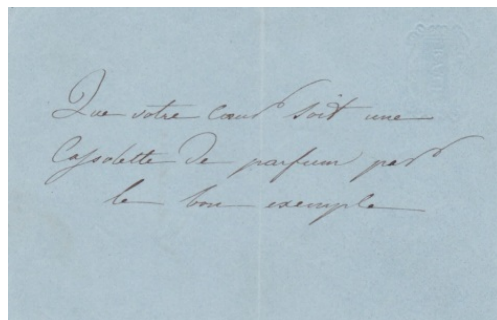 Que votre cœur soit une
Cassolette de parfum par
le bon exemple